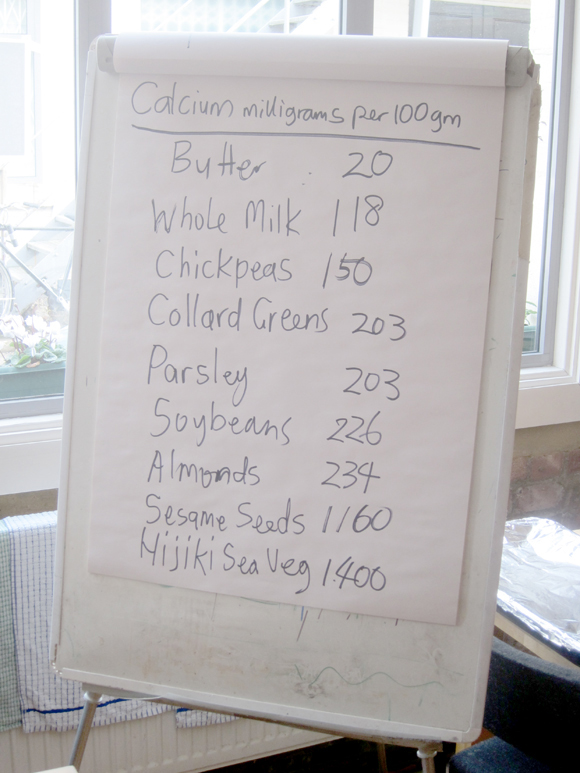 Calcium milligrams per 100gm
Butter 20
Whole Milk 118
Chickpeas 150
Collard Greens 203
Parsley 203
Soybeans 226
Almonds 234
Sesame Seeds 1160
Hijiki Sea Veg 1400